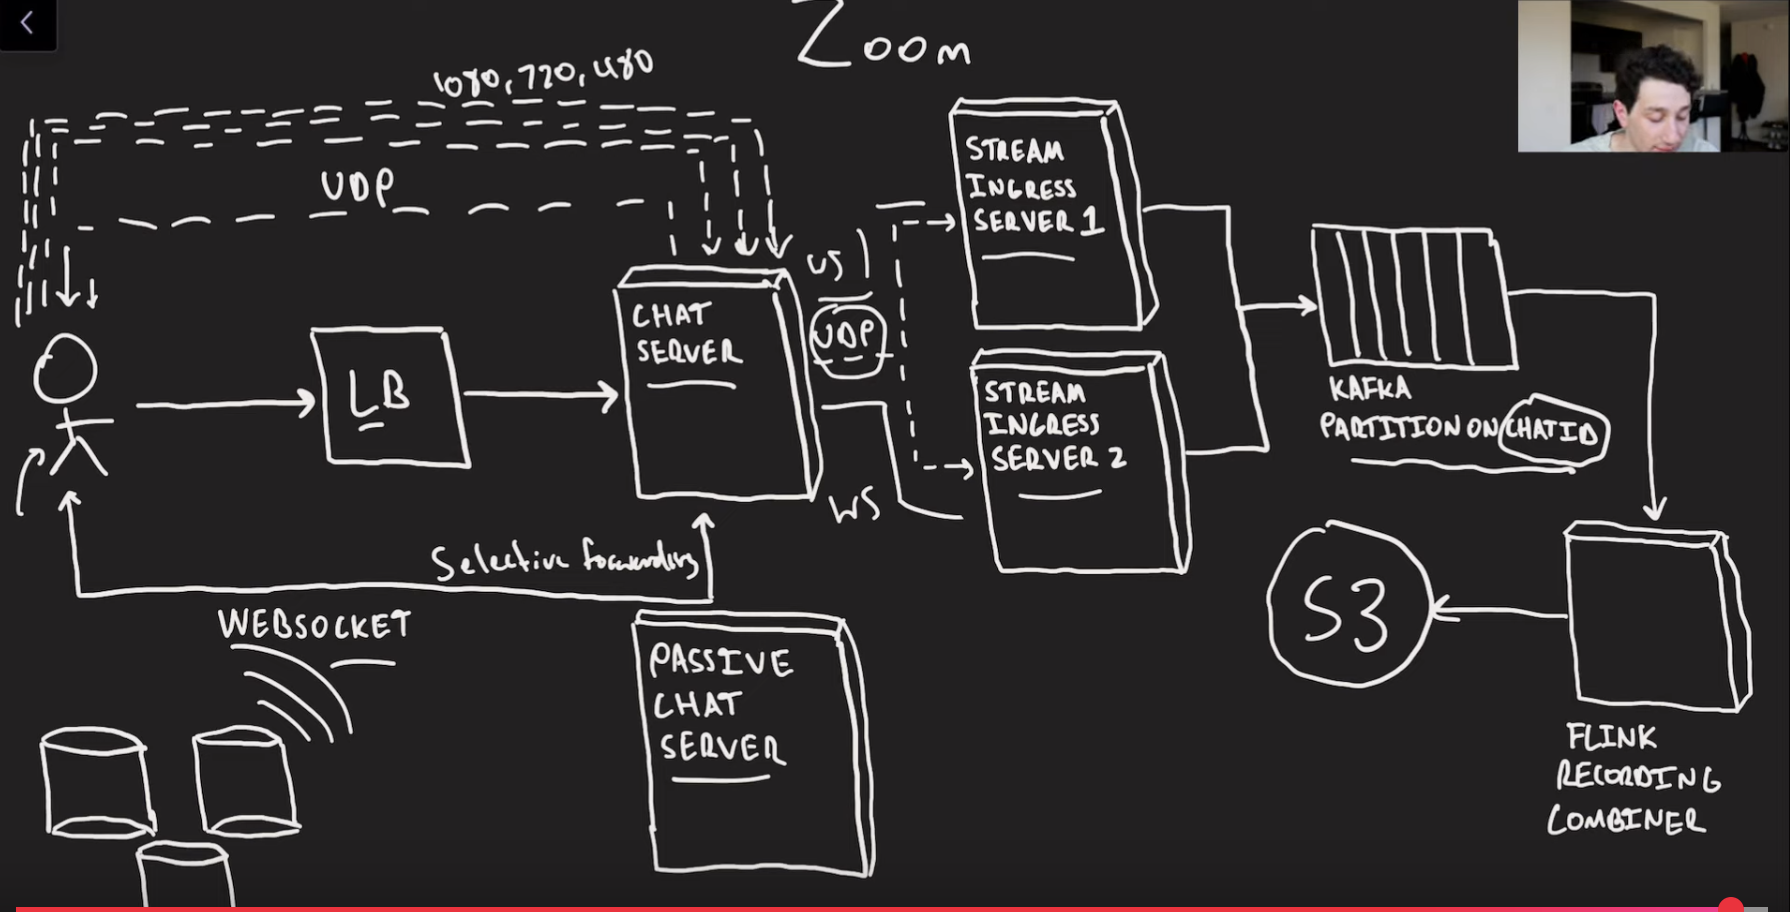 ZOOM
1080, 720, 480
UDP
STREAM
INGRESS
SERVER 1
CHAT
SERVER
UDP
LB
STREAM
INGRESS
SERVER 2
KAFKA
PARTITION ON CHATID
WS
Selective forwarding
WEBSOCKET
PASSIVE
CHAT
SERVER
S3
FLINK
RECORDING
COMBINER